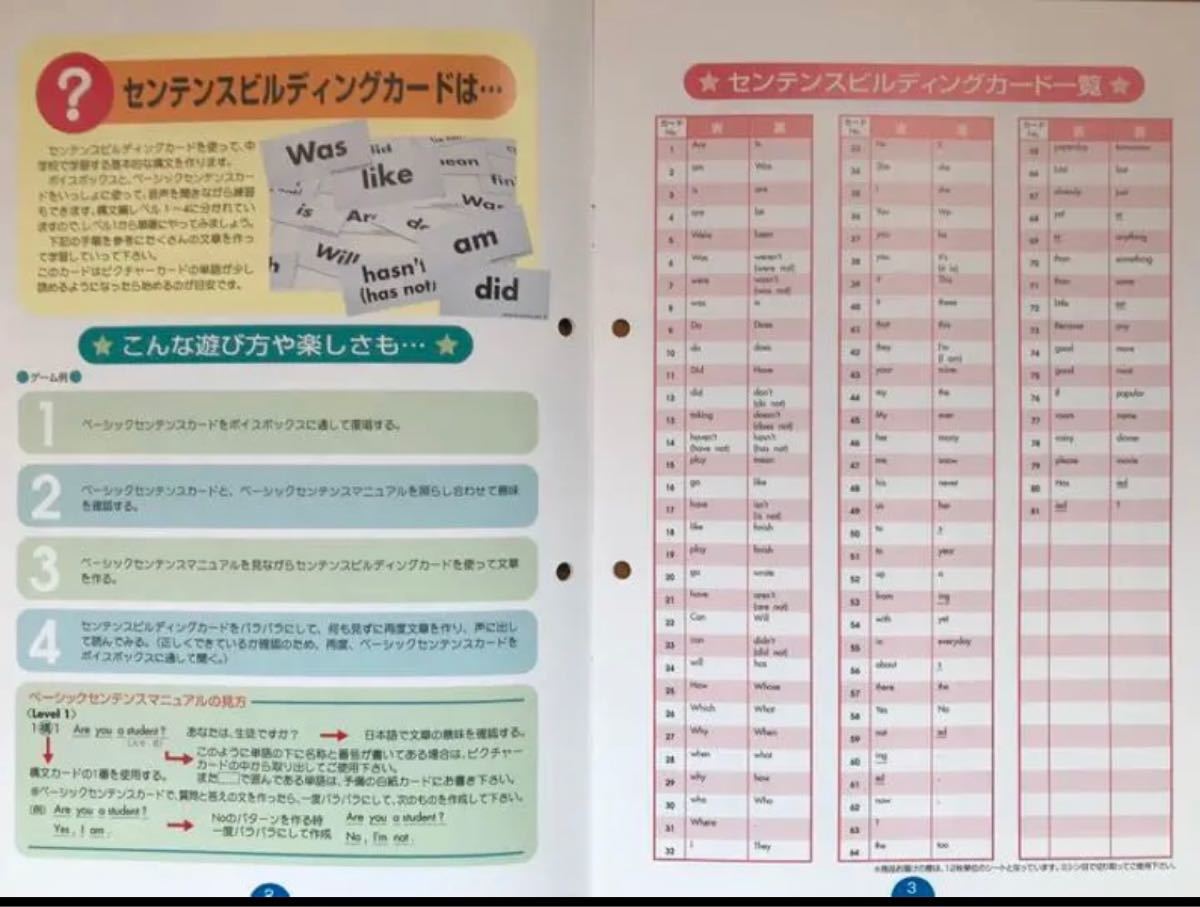 ?
センテンスビルディングカードは…
センテンスビルディングカードを使って、中
学校で学習する基本的な構文を作ります。
ボイスボックスと、ベーシックセンテンスカー
ドをいっしょに使って、音声を聞きながら練習
もできます。構文編レベル1～4に分かれてい
ますので、レベル1から順番にやってみましょう。
下記の手順を参考にたくさんの文章を作っ
て学習していって下さい。
このカードはピクチャーカードの単語が少し
読めるようになったら始めるのが目安です。
Was
did
like
mean
is
am
Will
hasn't
(has not)
did
★こんな遊び方や楽しさも…★
ゲーム例
1 ベーシックセンテンスカードをボイスボックスに通して復唱する。
2 ベーシックセンテンスカードと、ベーシックセンテンスマニュアルを照らし合わせて意味
を確認する。
3 ベーシックセンテンスマニュアルを見ながらセンテンスビルディングカードを使って文章
を作る。
4 センテンスビルディングカードをバラバラにして、何も見ずに再度文章を作り、声に出し
て読んでみる。(正しくできているか確認のため、再度、ベーシックセンテンスカードを
ボイスボックスに通して聞く。)
ベーシックセンテンスマニュアルの見方
〈Level 1〉
1 構/1 Are you a student? あなたは、生徒ですか? → 日本語で文章の意味を確認する。
このように単語の下に名称と番号が書いてある場合は、ピクチャー
カードの中から取り出してご使用下さい。
構文カードの1番を使用する。
また□で囲んである単語は、予備の白紙カードにお書き下さい。
※ベーシックセンテンスカードで、質問と答えの文を作ったら、一度バラバラにして、次のものを作成して下さい。
(例) Are you a student?
Yes, I am.
→ Noのパターンを作る時
一度バラバラにして作成
Are you a student?
No, I'm not.
2
★センテンスビルディングカード一覧★
カードNo. 表 裏
1 Are Is
2 am Was
3 is are
4 are be
5 Were been
6 Was weren't (were not)
7 were wasn't (was not)
8 was is
9 Do Does
10 do does
11 Did Have
12 did don't (do not)
13 taking doesn't (does not)
14 haven't (have not) hasn't (has not)
15 play mean
16 go like
17 have isn't (is not)
18 like finish
19 play finish
20 go wrote
21 have aren't (are not)
22 Can Will
23 can didn't (did not)
24 will has
25 How Whose
26 Which What
27 Why When
28 when what
29 why how
30 who Who
31 Where .
32 I They
カードNo.
33
34 She she
35 I she
36 You We
37 you he
38 you it's (it is)
39 it This
40 it these
41 that this
42 they I'm (I am)
43 your mine
44 my the
45 My ever
46 her many
47 me snow
48 his never
49 us her
50 to ?
51 to year
52 up a
53 from ing
54 with yet
55 in everyday
56 about s
57 there the
58 Yes No
59 not ed
60 ing .
61 ed .
62 now .
63 ?
64 the too
カードNo. 表 裏
65 yesterday tomorrow
66
67 already just
68 yet er
69 er anything
70 than something
71 than some
72 little est
73 Because any
74 good more
75 good most
76 if popular
77 room name
78 rainy dinner
79 please movie
80 Has ed
81 ed ?
※商品お届けの際は、12枚単位のシートとなっています。ミシン目で切り取ってご使用下さい。
3